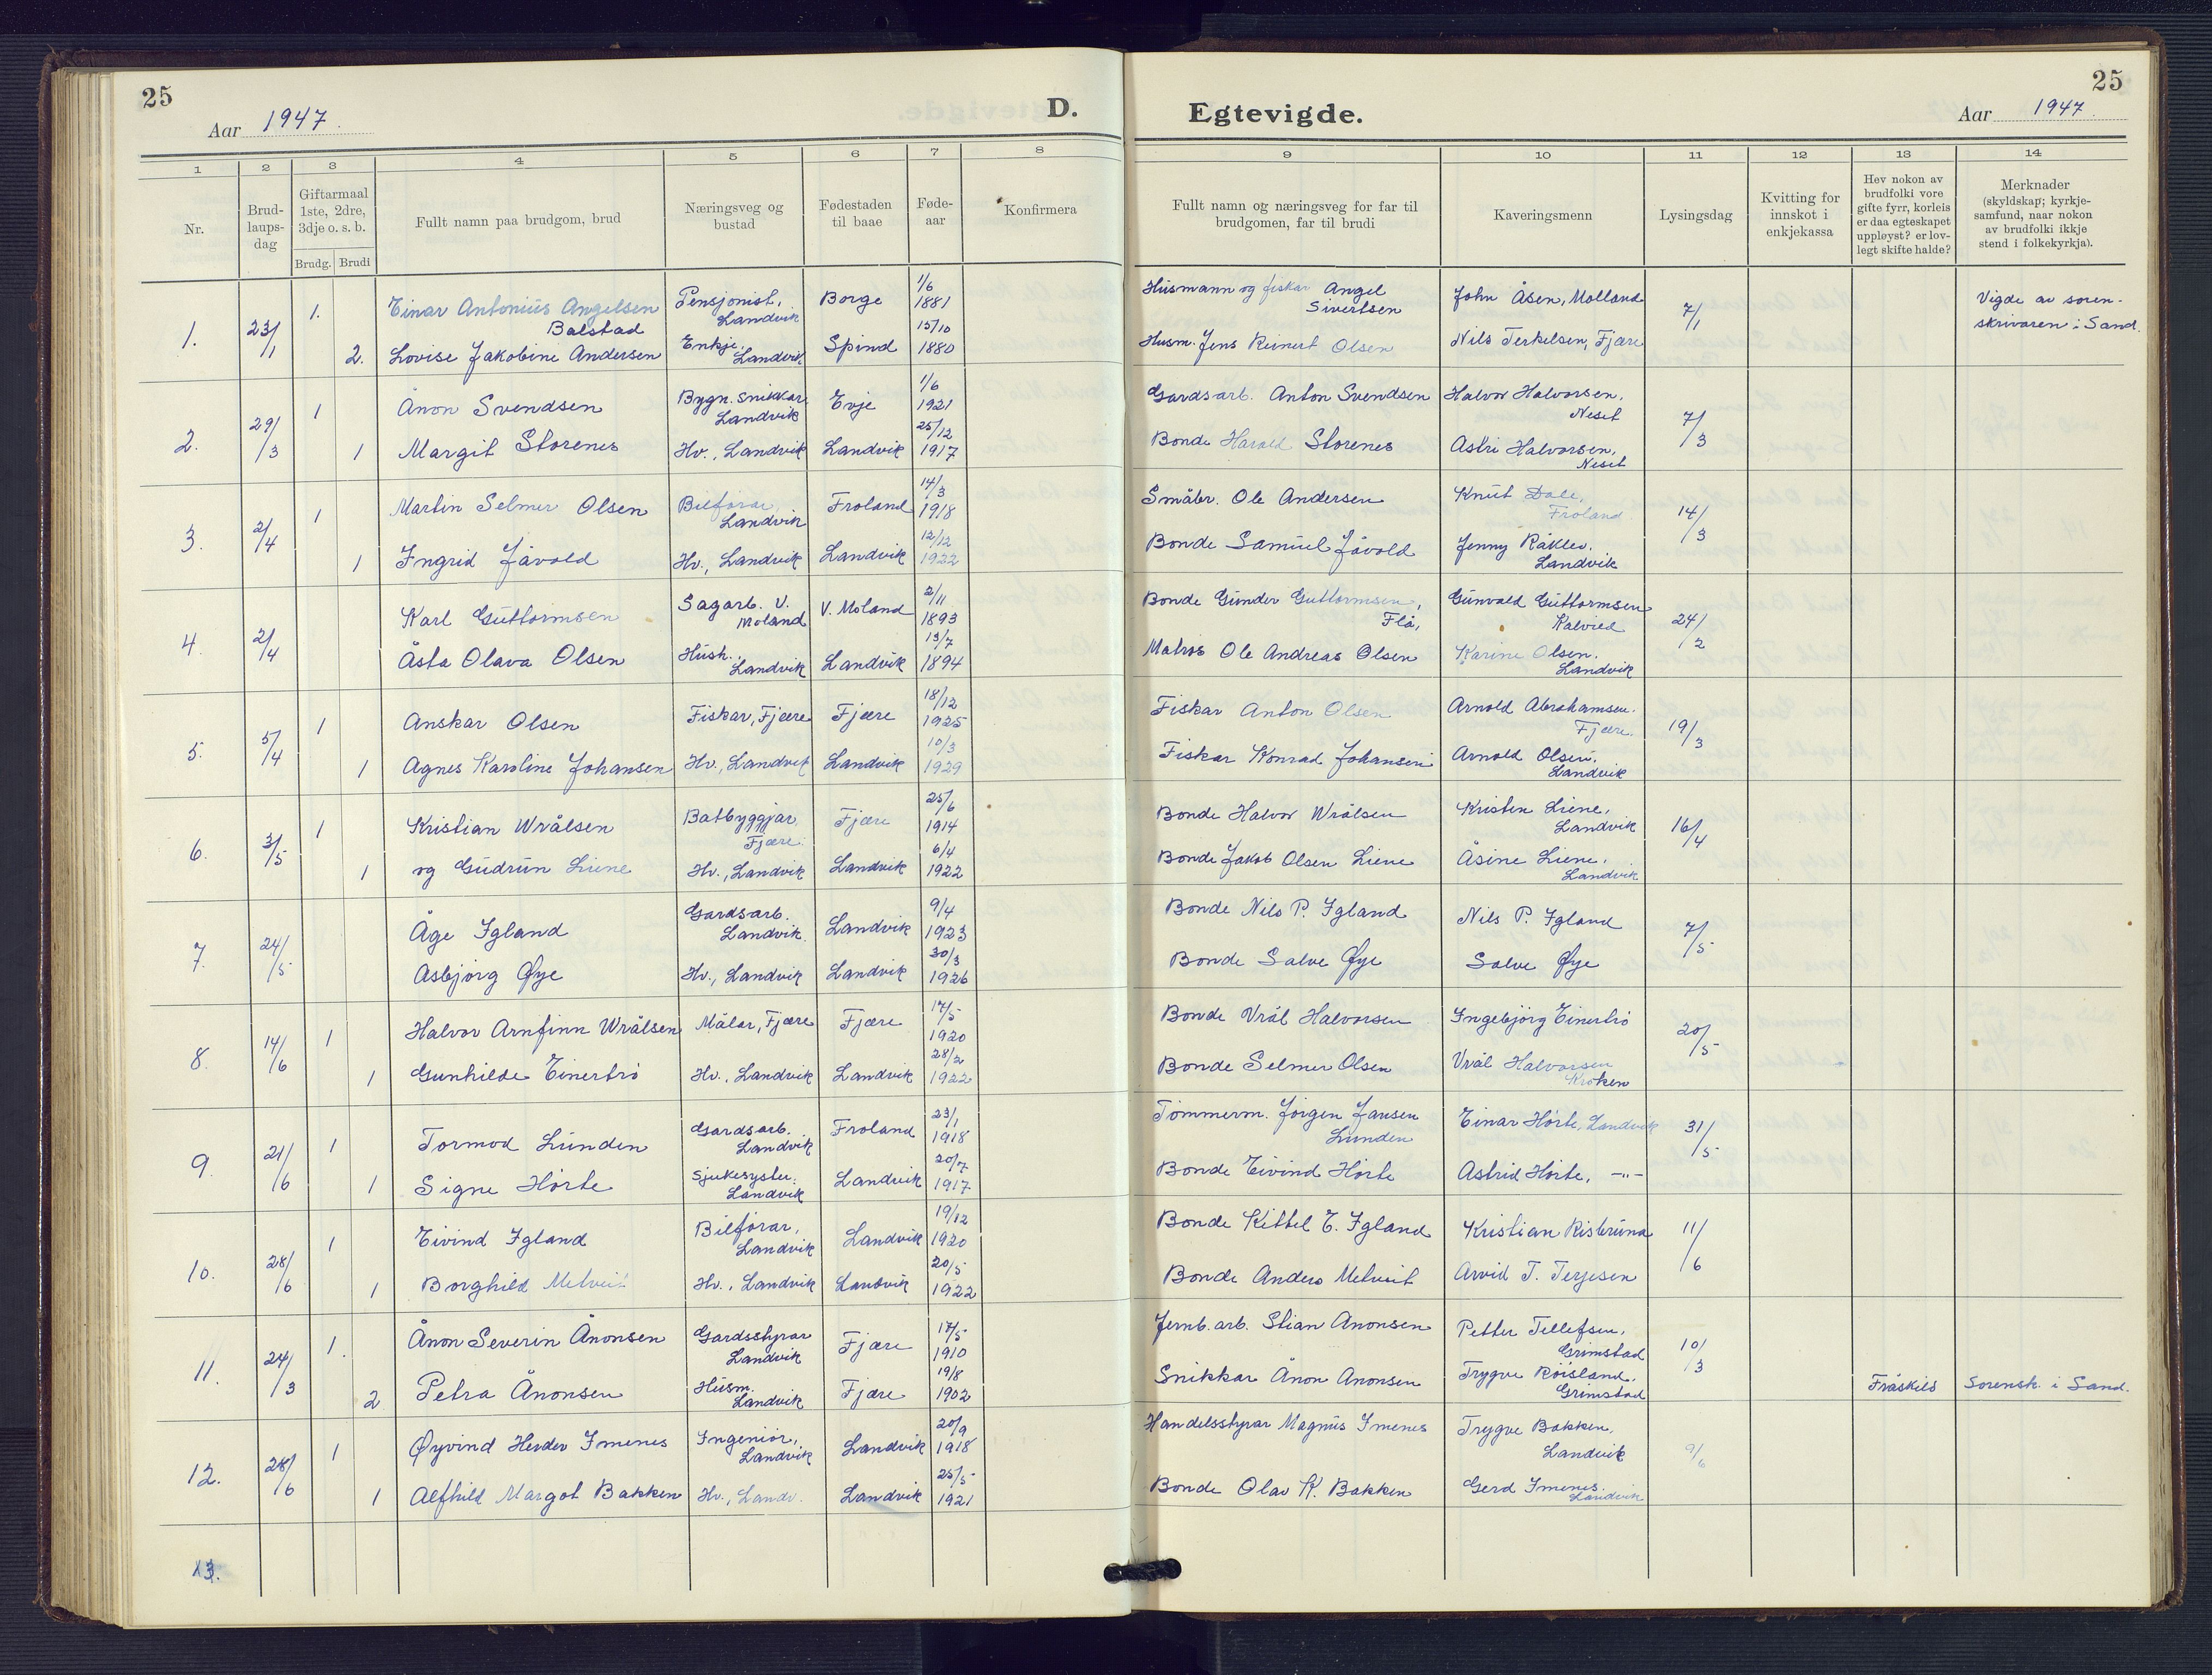 25
Aar 1947.
D.
Egtevigde.
25
Aar 1947.
1 2 3 4 5 6 7 8 9 10 11 12 13 14
Nr.
Brud-
laups-
dag
Giftarmaal
1ste, 2dre,
3dje o. s. b.
Brudg. Brudi
Fullt namn paa brudgom, brud
Næringsveg og
bustad
Fødestaden
til baae
Føde-
aar
Konfirmera
Fullt namn og næringsveg for far til
brudgomen, far til brudi
Kaveringsmenn
Lysingsdag
Kvitting for
innskot i
enkjekassa
Hev nokon av
brudfolki vore
gifte fyrr, korleis
er daa egteskapet
uppløyst? er lov-
legt skifte halde?
Merknader
(skyldskap; kyrkje-
samfund, naar nokon
av brudfolki ikkje
stend i folkekyrkja).
1. 23/1
1. Einar Antonius Angelsen
Balstad
Pensjonist,
Landvik
Borge
1/6
1881
Husmann og fiskar Angel
Sivertsen
John Åsen, Molland
7/1
Vigde av soren-
skrivaren i Sand.
2. Lovise Jakobine Andersen
Enkje,
Landvik
Spind
15/10
1880
Husm. Jens Reinert Olsen
Nils Terkelsen, Fjære
2. 29/3
1 Ånon Svendsen
Bygn. snikkar
Landvik
Evje
1/6
1921
Gardsarb. Anton Svendsen
Halvor Halvorsen,
Neset
7/3
1 Margit Storenes
Hv., Landvik
Landvik
25/12
1917
Bonde Harald Storenes
Astri Halvorsen,
Neset
3. 2/4
1 Martin Selmer Olsen
Bilførar,
Landvik
Froland
14/3
1918
Småbr. Ole Andersen
Knut Dale,
Froland
14/3
1 Ingrid Jåvold
Hv., Landvik
Landvik
12/12
1922
Bonde Samuel Jåvold
Jenny Råklev.
Landvik
4. 2/4
Karl Guttormsen
Sagarb. V.
Moland
V. Moland
2/11
1893
Bonde Gunder Guttormsen,
Flå,
Gunvald Guttormsen
Kalvild
24/2
Åsta Olava Olsen
Hush.,
Landvik
Landvik
13/7
1894
Matros Ole Andreas Olsen
Karine Olsen.
Landvik
5. 5/4
1 Anskar Olsen
Fiskar, Fjære
Fjære
18/12
1925
Fiskar Anton Olsen
Arnold Abrahamsen.
Fjære.
19/3
1 Agnes Karoline Johansen
Hv., Landvik
Landvik
10/3
1929
Fiskar Konrad Johansen
Arnold Olsen.
Landvik
6. 3/5
1 Kristian Wrålsen
Båtbyggjar
Fjære.
Fjære
25/6
1914
Bonde Halvor Wrålsen
Kristen Liene,
Landvik
16/4
1 og Gudrun Liene
Hv., Landvik
Landvik
6/4
1922
Bonde Jakob Olsen Liene
Åsine Liene.
Landvik
7. 24/5
Åge Igland
Gardsarb.
Landvik.
Landvik
9/4
1923
Bonde Nils P. Igland
Nils P. Igland
7/5
Asbjørg Øye
Hv., Landvik
Landvik
30/3
1926
Bonde Salve Øye
Salve Øye
8. 14/6
1 Halvor Arnfinn Wrålsen
Målar, Fjære
Fjære
17/5
1920
Bonde Vrål Halvorsen
Ingebjørg Einertrö
20/5
1 Gunhilde Einertrö
Hv., Landvik
Landvik
28/2
1922
Bonde Selmer Olsen
Vrål Halvorsen
Kroken
9. 21/6
1 Tormod Lunden
Gardsarb.
Landvik
Froland
23/1
1918
Tömmerm. Jörgen Jansen
Lunden
Einar Hörte, Landvik
31/5
1 Signe Hörte
Sjukesyster.
Landvik
Landvik
20/7
1917
Bonde Eivind Hörte
Astrid Hörte, -"-
10. 28/6
1 Eivind Igland
Bilförar,
Landvik
Landvik
19/12
1920
Bonde Kittel E. Igland
Kristian Risbruna
11/6
1 Borghild Metveit
Hv., Landvik
Landvik
20/5
1922
Bonde Anders Metveit
Arvid T. Terjesen
11. 24/3
1. Ånon Severin Ånonsen
Gardsstyrar
Landvik
Fjære
17/5
1910
Jernb. arb. Stian Anonsen
Petter Tellefsen,
Grimstad
10/3
2 Petra Ånonsen
Husm.
Landvik
Fjære
19/8
1902
Snikkar Ånon Anonsen
Trygve Röisland.
Grimstad
Fråskild
Sorensk. i Sand.
12. 28/6
1 Øyvind Herder Imenes
Ingeniör,
Landvik
Landvik
20/9
1918
Handelsstyrar Magnus Imenes
Trygve Bakken,
Landvik
9/6
1 Alfhild Margot Bakken
Hv., Landv.
Landvik
25/5
1921
Bonde Olav K. Bakken
Gerd Imenes.
Landvik
13.